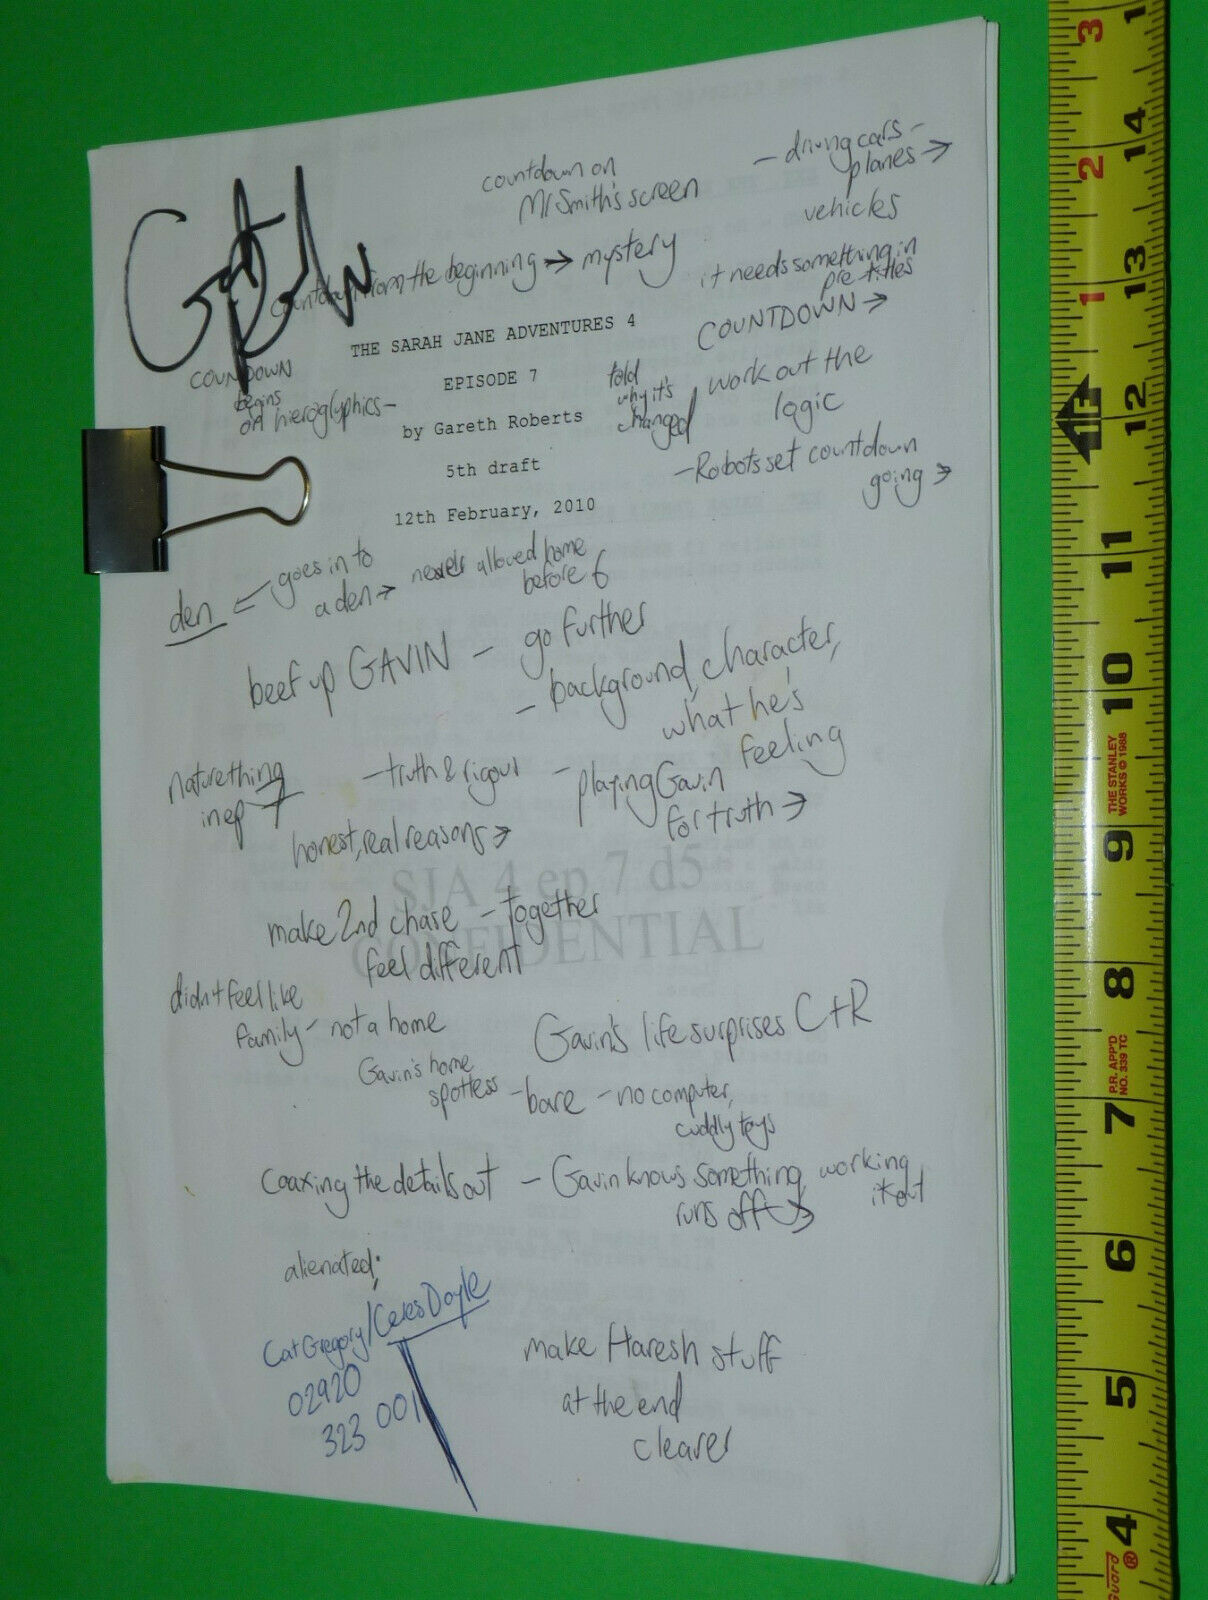 countdown on
Mr Smith's screen
- driving cars -
planes →
vehicles
countdown from the beginning → mystery
it needs something in
pre-titles
COUNTDOWN →
THE SARAH JANE ADVENTURES 4
EPISODE 7
by Gareth Roberts
5th draft
12th February, 2010
COUNTDOWN
begins
on hieroglyphics -
told
why it's
changed
work out the
logic
- Robots set countdown
going →
den
goes in to
a den →
allowed home
before 6
beef up GAVIN - go further
- background, character,
what he's
feeling
nature thing
in ep 7
- truth & rigour
- playing Gavin
for truth →
honest, real reasons →
SJA 4 ep 7 d5
CONFIDENTIAL
make 2nd chase - together
feel different
didn't feel like
family - not a home
Gavin's life surprises C + R
Gavin's home
spotless - bare - no computer,
cuddly toys
coaxing the details out - Gavin knows something, working
it out
runs off →
alienated;
Cat Gregory/Ceres Doyle
02920
323 001
make Haresh stuff
at the end
clearer
3
2
1
1F
14
13
12
11
10
9
8
7
6
5
4
THE STANLEY
WORKS © 1988
P.R. APP'D
NO. 339 TC